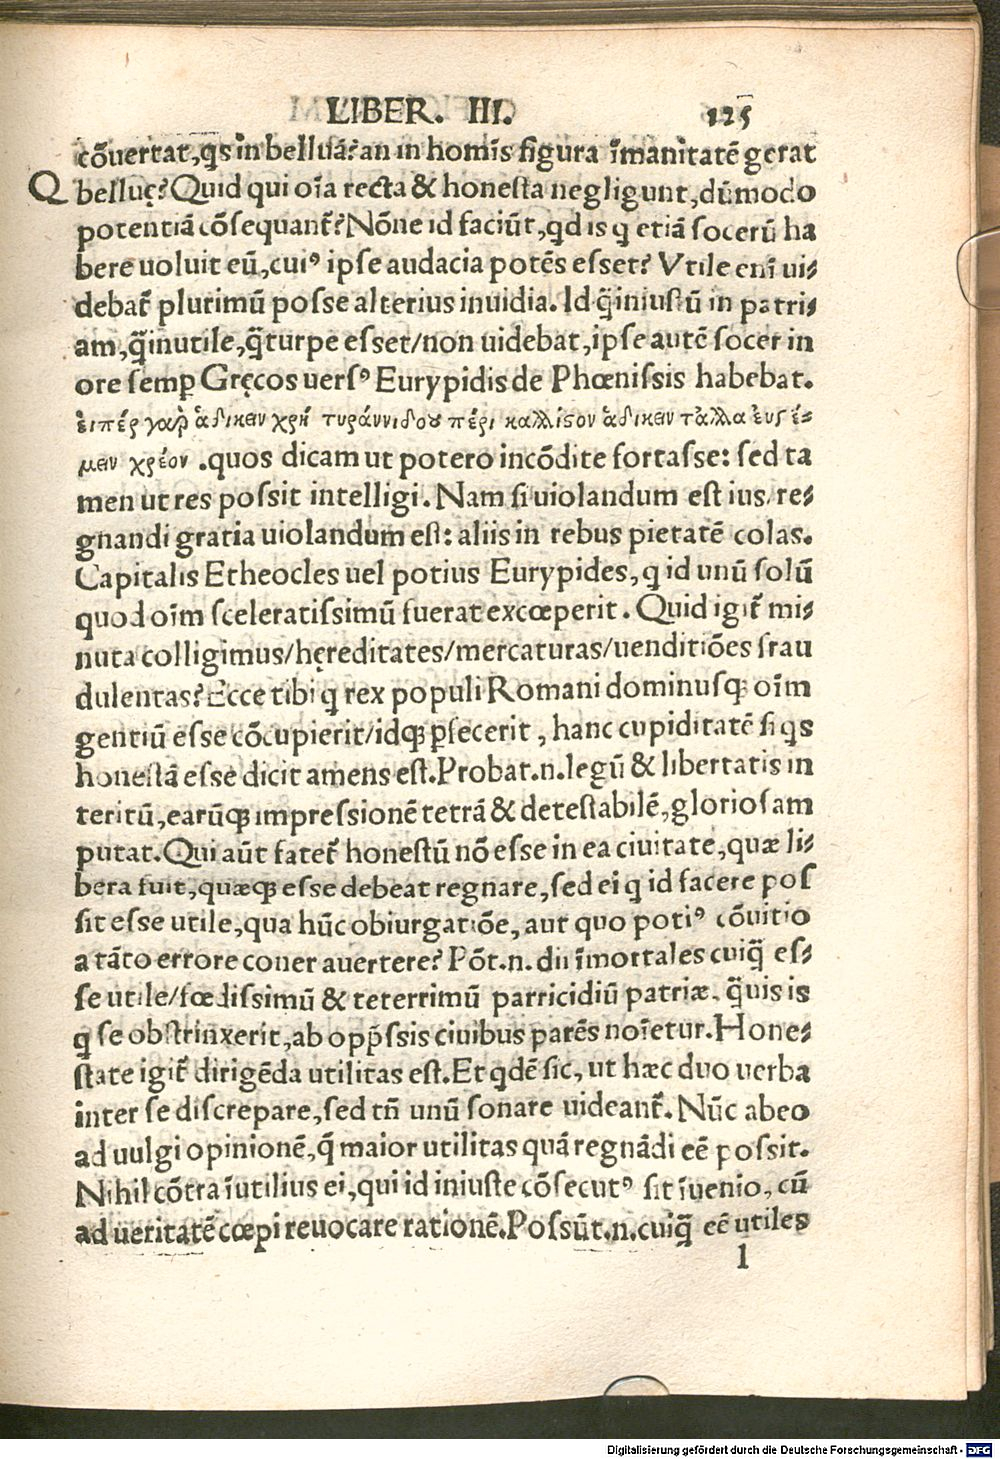 LIBER. III. 125
cõuertat, q̃s in belluã? an in homĩs figura ĩmanitatẽ gerat
Q belluę? Quid qui oĩa recta & honesta negligunt, dũmodo
potentiã cõsequant̃? Nõne id faciũt, qd is q etiã socerũ ha
bere uoluit eũ, cuiꝰ ipse audacia potẽs esset? Vtile enĩ ui⸗
debat̃ plurimũ posse alterius inuidia. Id q̃ iniustũ in patri⸗
am, q̃ inutile, q̃ turpe esset/non uidebat, ipse autẽ socer in
ore semꝑ Gręcos uersꝰ Eurypidis de Phœnissis habebat.
ἐιπέρ γαρ̀ ἀδικειν χρὴ τυράννιδου πέρι καλλιϛον ἀδικειν τἆλλα ἐυσέ⸗
μειν χρέον .quos dicam ut potero incõdite fortasse: sed ta
men ut res possit intelligi. Nam si uiolandum est ius, re⸗
gnandi gratia uiolandum est: aliis in rebus pietatẽ colas.
Capitalis Etheocles uel potius Eurypides, q id unũ solũ
quod oĩm sceleratissimũ fuerat excœperit. Quid igit̃ mi⸗
nuta colligimus/hęreditates/mercaturas/uenditiões frau
dulentas? Ecce tibi q rex populi Romani dominusqꝫ oĩm
gentiũ esse cõcupierit/idqꝫ ꝑfecerit, hanc cupiditatẽ si q̃s
honestã esse dicit amens est. Probat.n. legũ & libertatis in
teritũ, earũqꝫ impressionẽ tetrã & detestabilẽ, gloriosam
putat. Qui aũt fatet̃ honestũ nõ esse in ea ciuitate, quæ li⸗
bera fuit, quæqꝫ esse debeat regnare, sed ei q id facere pos
sit esse utile, qua hũc obiurgatiõe, aut quo potiꝰ cõuitio
a tãto errore coner auertere? Põt.n. dii ĩmortales cuiq̃ es⸗
se utile/fœdissimũ & teterrimũ parricidiũ patriæ. q̃uis is
q se obstrinxerit, ab opp̃ssis ciuibus parẽs noĩetur. Hone⸗
state igit̃ dirigẽda utilitas est. Et qdẽ sic, ut hæc duo uerba
inter se discrepare, sed tñ unũ sonare uideant̃. Nũc abeo
ad uulgi opinionẽ, q̃ maior utilitas quã regnãdi eẽ possit.
Nihil cõtra ĩutilius ei, qui id iniuste cõsecutꝰ sit ĩuenio, cũ
ad ueritatẽ cœpi reuocare rationẽ. Possũt.n. cuiq̃ eẽ utiles
l
Digitalisierung gefördert durch die Deutsche Forschungsgemeinschaft - DFG